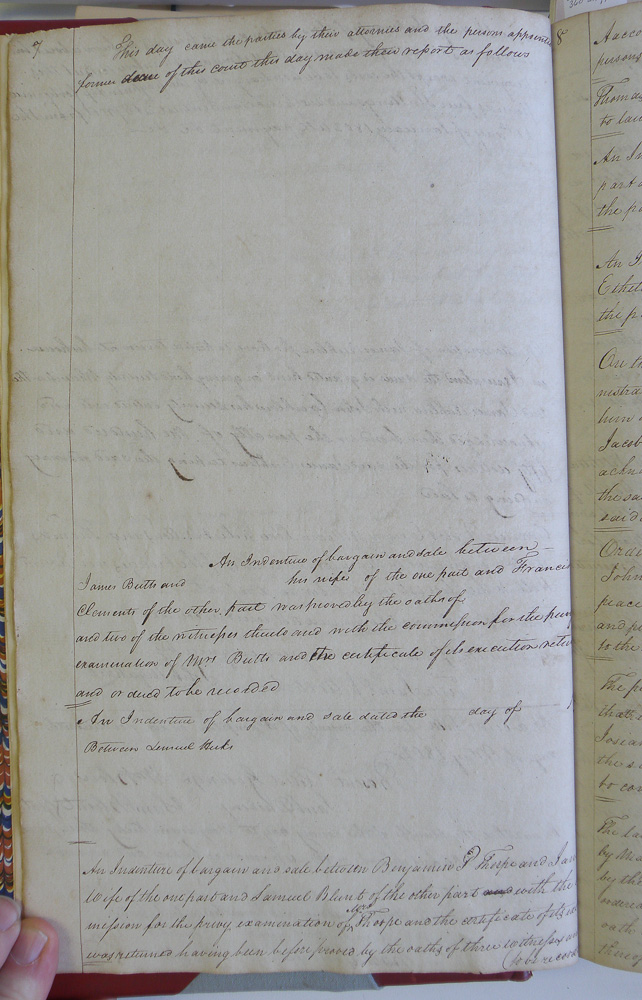 7
This day came the parties by their attornies and the persons appointed
former deces of this court this day made their report as follows
An Indenture of bargain and sale between
James Butts and his wife of the one part and Francis
Clements of the other part was proved by the oaths of
and two of the witnesses thereto and with the commission for the privy
examination of Mrs Butts and the certificate of its execution retu
and ordered to be recorded
An Indenture of bargain and sale dated the day of
Between Lemuel Hicks
An Indenture of bargain and sale between Benjamin P Thorpe and Jan
Wife of the one part and Samuel Blunt of the other part and with the
mission for the privy examination of Mrs Thorpe and the certificate of its ex
was returned having been before proved by the oaths of three witnesses
to be record
8
Accco
person
Thomas
to lau
An In
part
the p
An I
the p
On th
nistra
him
Jacob
ackn
the sa
said
Order
John
peace
and p
to the
The p
that
Josea
the s
to con
The la
by
by th
ordered
oath
thereof